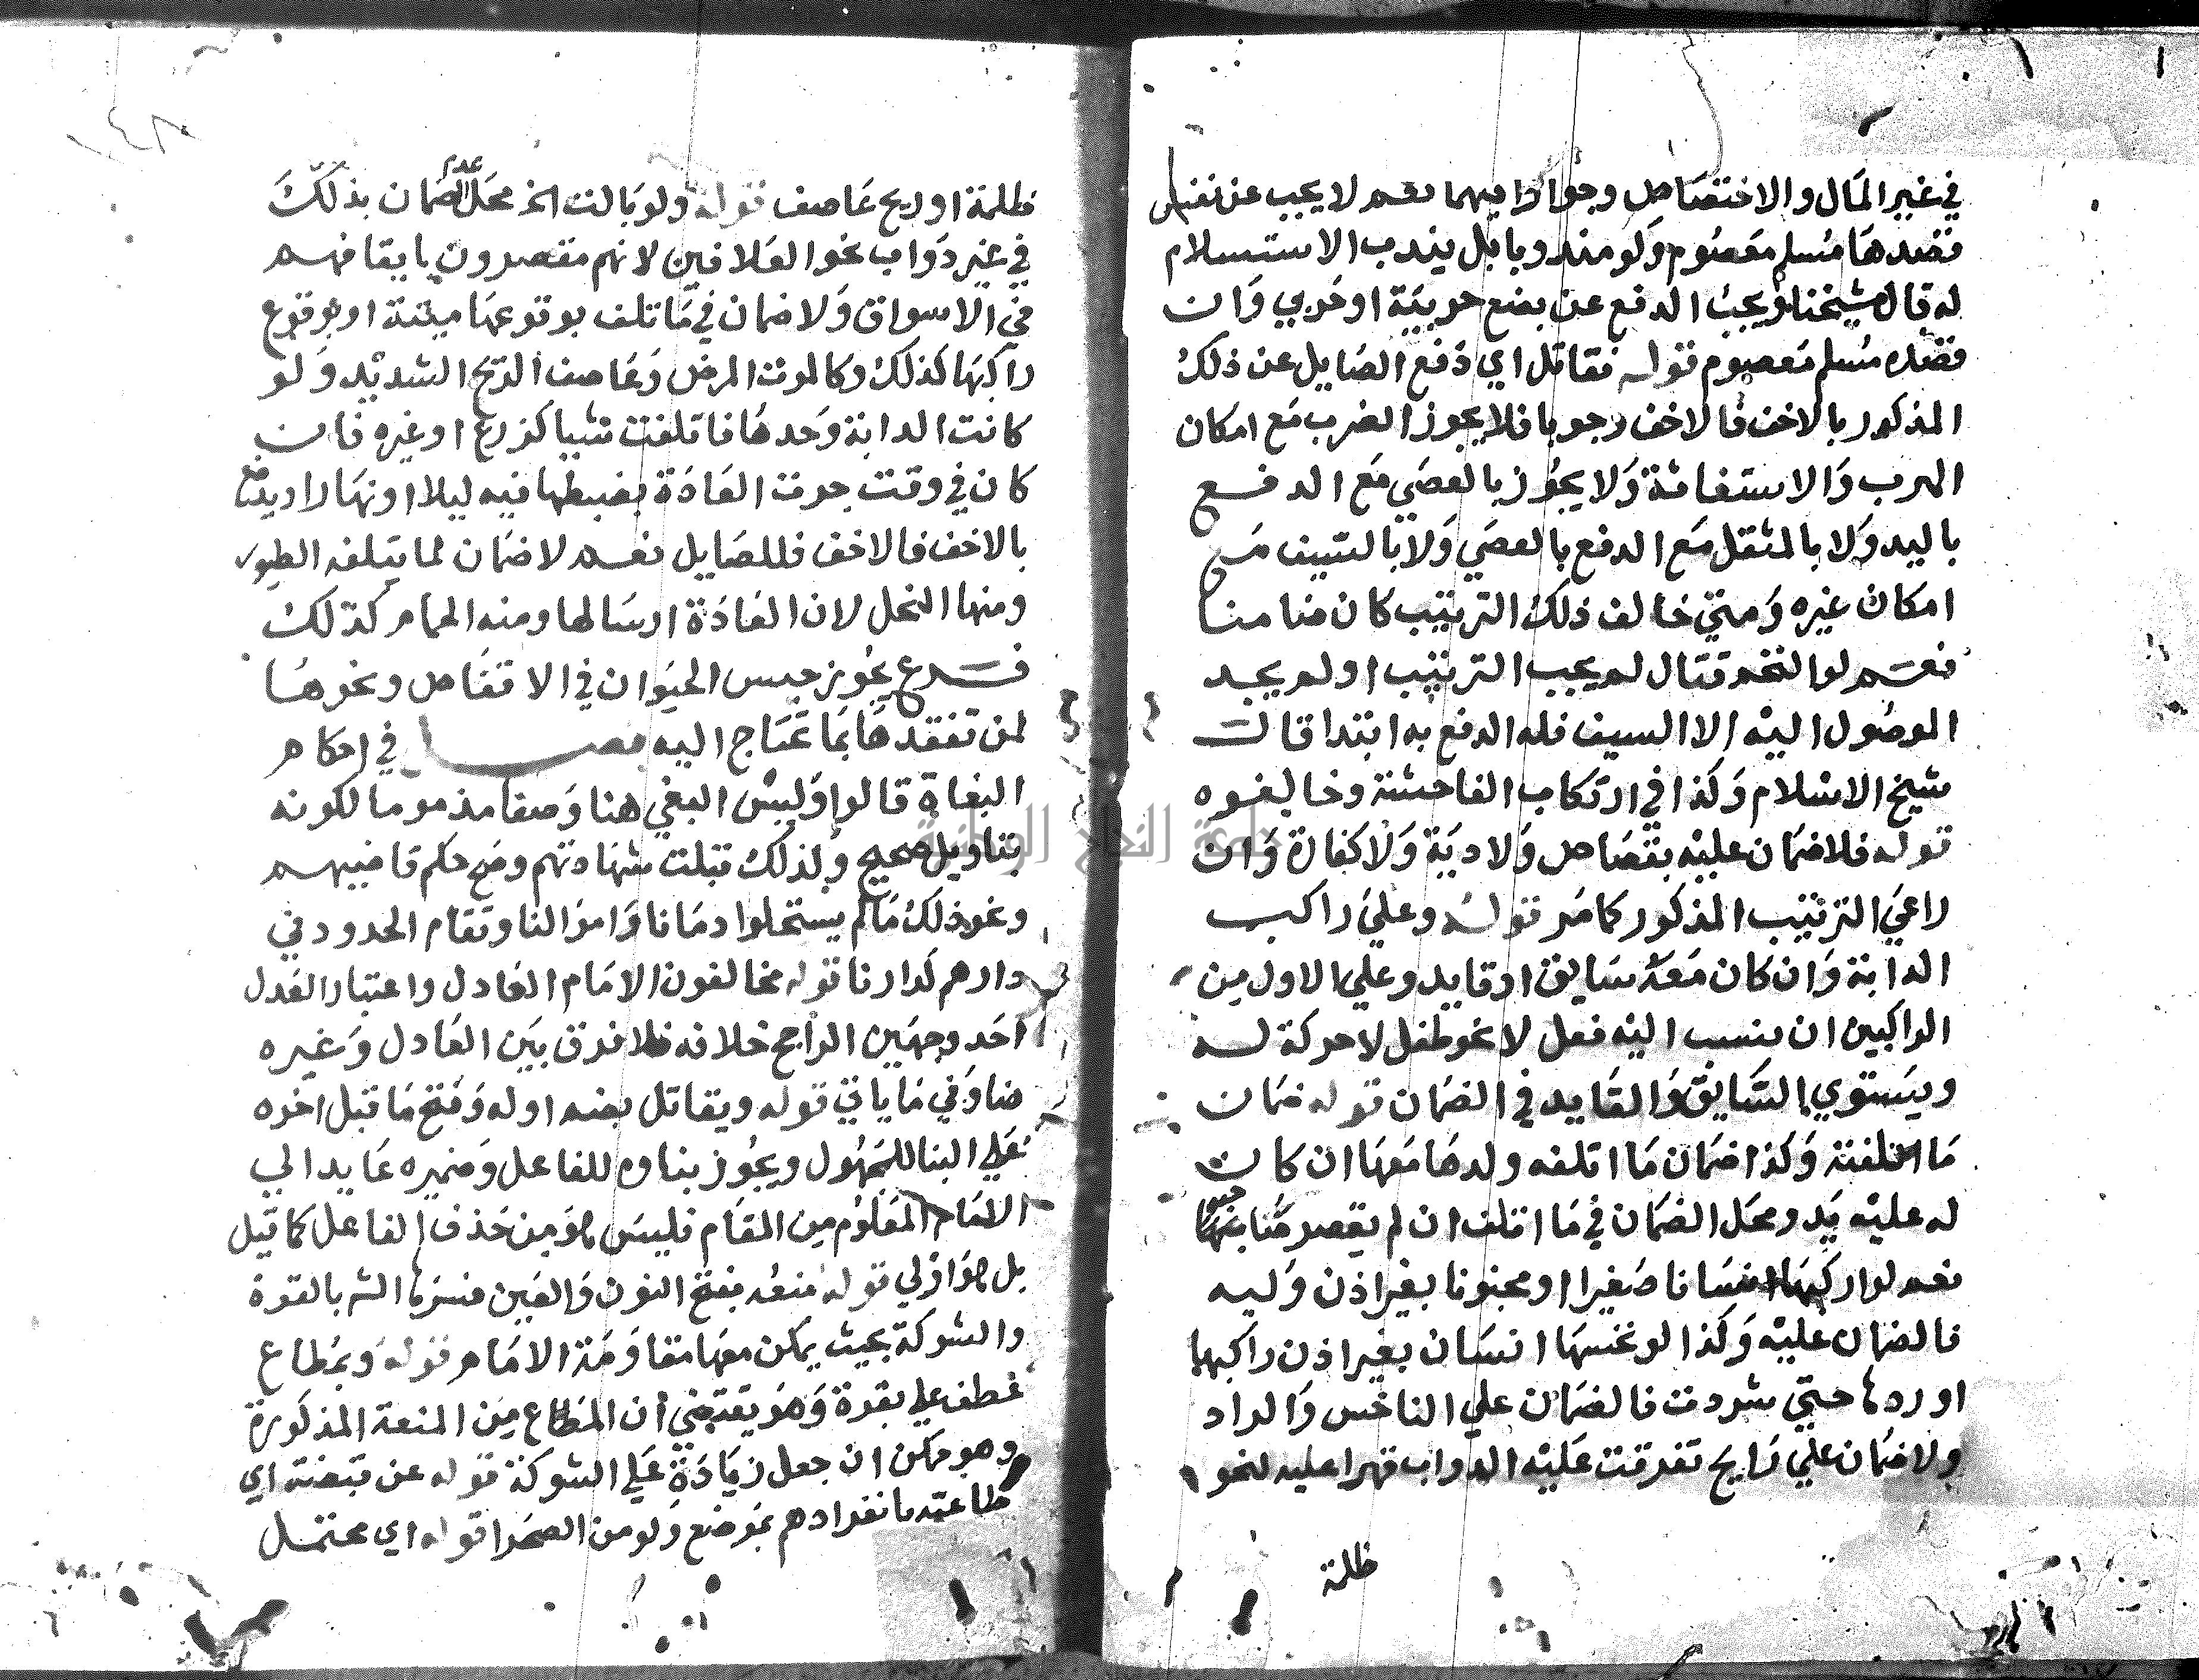 في غير المال والاختصاص وجوازا فيهما نعم لا يجب عن نفس
قصدها مسلم معصوم ولو مهدرا بل يندب الاستسلام
له قال شيخنا ويجب الدفع عن بضع حربية او حربي وان
قصده مسلم معصوم قوله فقاتل اي دفع الصايل عن ذلك
المذكور بالاخف فالاخف وجوبا فلا يجوز الضرب مع امكان
الهرب والاستغاثة ولا يجوز بالعصي مع الدفع
باليد ولا بالمثقل مع الدفع بالعصي ولا بالسيف مع
امكان غيره ومتي خالف ذلك الترتيب كان ضامنا
نعم لو التحم قتال لم يجب الترتيب او لم يجد
الموصول اليه الا السيف فله الدفع به ابتدا قال
شيخ الاسلام وكذا في ارتكاب الفاحشة وخالفوه
قوله فلا ضمان عليه بقصاص ولا دية ولا كفارة وان
راعي الترتيب المذكور كما مر قوله وعلي راكب
الدابة وان كان معه سايق او قايد وعلي الاول من
الراكبين ان ينسب اليه فعل لا نحو طفل لا حركة له
ويستوي السايق والقايد في الضمان قوله ضمان
ما اتلفته وكذا ضمان ما اتلفه ولدها معها ان كان
له عليه يد ومحل الضمان في ما اتلف ان لم يقصر صاحبها
نعم لو اركبها انسانا صغيرا او مجنونا بغير اذن وليه
فالضمان عليه وكذا لو نخسها انسان بغير اذن راكبها
او ردها حتي شردت فالضمان علي الناخس والراد
ولا ضمان علي رايح تفرقت عليه الدواب قهرا عليه لنحو
ظلمة
ظلمة او ريح عاصف قوله ولو بالت الخ محل عدم الضمان بذلك
في غير دواب نحو العلافين لانهم مقصرون بايقافهم
في الاسواق ولا ضمان في ما تلف بوقوعها ميتة او بوقوع
راكبها كذلك وكالموت المرض وعاصف الريح الشديد ولو
كانت الدابة وحدها فاتلفت شيا كزرع او غيره فان
كان في وقت جرت العادة بضبطها فيه ليلا او نهارا
بالاخف فالاخف فللصايل نعم لا ضمان لما يتلفه الطيور
ومنها النحل لان العادة ارسالها ومنه الحمام كذلك
فرع يجوز حبس الحيوان في الاقفاص ونحوها
لمن تفقدها بما تحتاج اليه فصل في احكام
البغاة قالوا وليس البغي هنا وصفا مذموما لكونه
بتاويل صحيح ولذلك قبلت شهادتهم وصح حكم قاضيهم
ونحو ذلك ما لم يستحلوا دمانا وامو النا وتقام الحدود في
دارهم كدارنا قوله مخالفون الامام العادل واعتبار العدل
احد وجهين الراجح خلافه فلا فرق بين العادل وغيره
هنا وفي ما ياتي قوله ويقاتل بضم اوله وفتح ما قبل اخره
علي البنا للمجهول ويجوز بناوه للفاعل وضميره عايد الي
الامام المعلوم من المقام فليس هو من حذف الفاعل كما قيل
بل هو اولي قوله منعه بفتح النون والعين فسرها الشم بالقوة
والشوكة بحيث يمكن معها مقاومة الامام قوله وبمطاع
عطف علي بقوة وهو يقتضي ان المطاع من المنعة المذكورة
وهو ممكن ان جعل زيادة علي الشوكة قوله عن قبضته اي
طاعته بانفرادهم بموضع ولو من الصحرا قوله اي محتمل